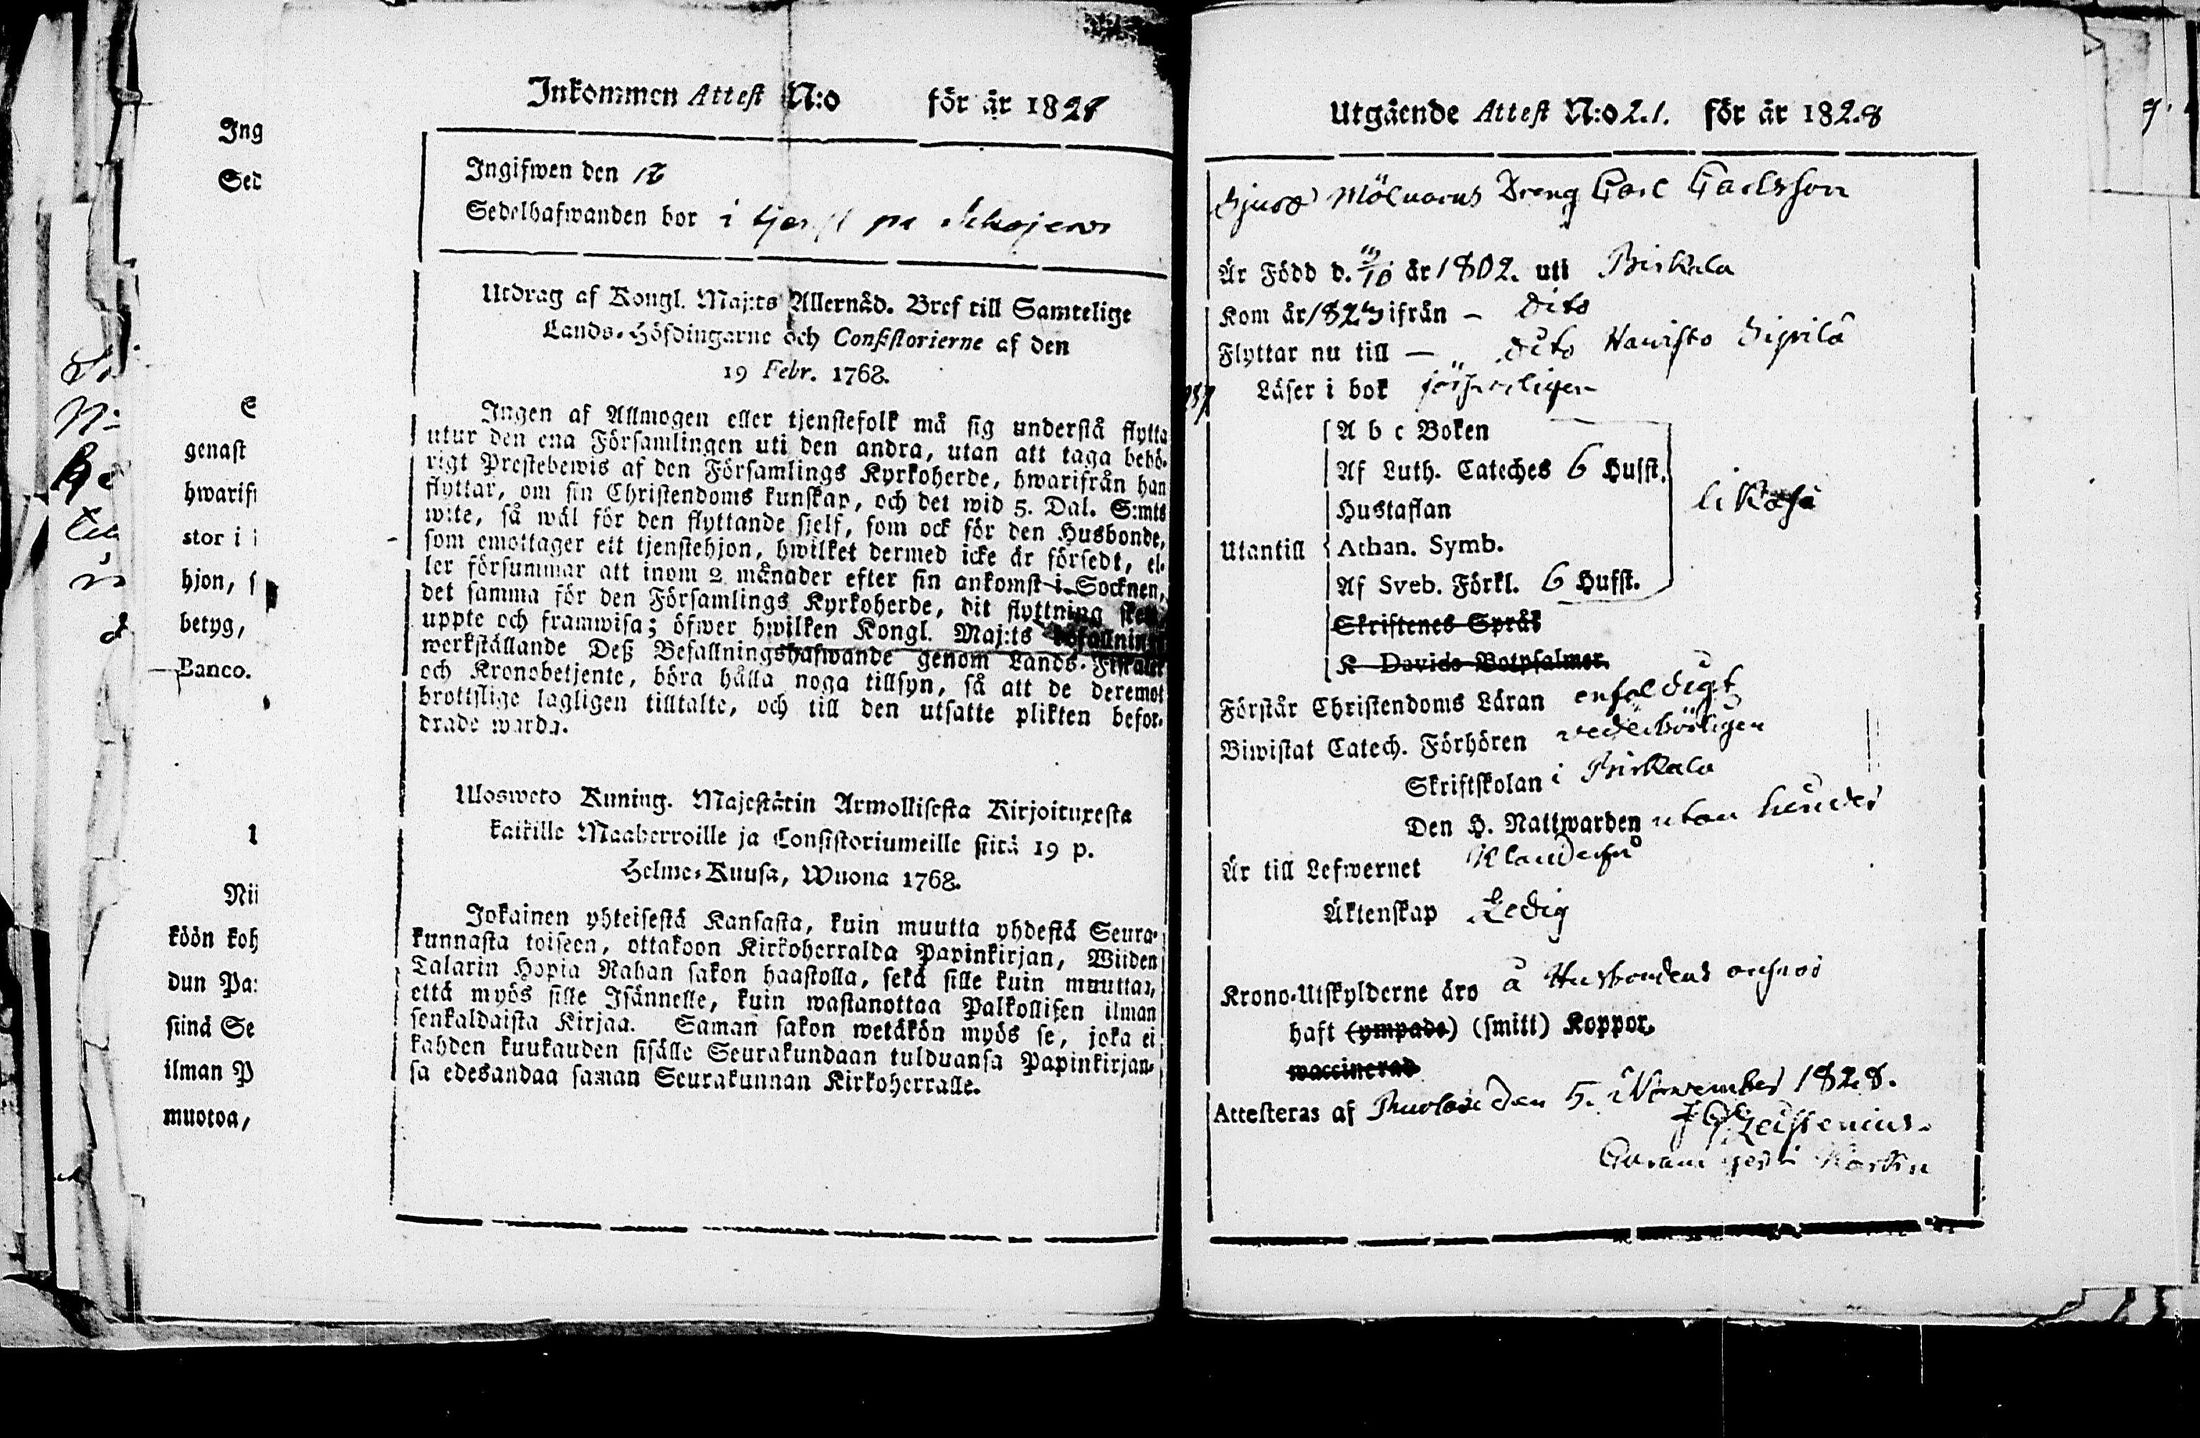 Ing
Sed
genast
hwarif
stor i
hjon, s
betyg,
Banco.
Nii
köön koh
dun Pa
siinä Se
ilman P
muotoa,
Inkommen Attest N:o för år 1828
Ingifwen den
Sedelhafwanden bor i
Utdrag af Kongl. Maj:ts Allernåd. Bref till Samtelige
Lands-Höfdingarne och Consistorierne af den
19 Febr. 1768.
Ingen af Allmogen eller tjenstefolk må sig understå flytta
utur den ena Församlingen uti den andra, utan att taga behö-
rigt Prestebewis af den Församlings Kyrkoherde, hwarifrån han
flyttar, om sin Christendoms kunskap, och det wid 5. Dal. S:mts
wite, så wäl för den flyttande sjelf, som ock för den Husbonde,
som emottager ett tjenstehjon, hwilket dermed icke är försedt, el-
ler försummar att inom 2 månader efter sin ankomst i Socknen,
det samma för den Församlings Kyrkoherde, dit flyttning sker,
uppte och framwisa; öfwer hwilken Kongl. Maj:ts befallnings
werkställande Deß Befallningshafwande genom Lands-Fiskaler
och Kronobetjente, böra hålla noga tillsyn, så att de deremot
brottslige lagligen tilltalte, och till den utsatte plikten befor-
drade warda.
Ulosweto Kuning. Majestätin Armollisesta Kirjoituxesta
kaikille Maaherroille ja Consistoriumeille siitä 19 p.
Helme-Kuusa, Wuona 1768.
Jokainen yhteisestä Kansasta, kuin muutta yhdestä Seura-
kunnasta toiseen, ottakoon Kirkoherralda Papinkirjan, Wiiden
Talarin Hopia Rahan sakon haastolla, sekä sille kuin muuttaa,
että myös sille Isännelle, kuin wastanottaa Palkollißen ilman
senkaldaista Kirjaa. Saman sakon wetäkön myös se, joka ei
kahden kuukauden sisälle Seurakundaan tulduansa Papinkirjan-
sa edesandaa saman Seurakunnan Kirkoherralle.
Utgående Attest N:o 21. för år 1828
Mölnarns Dreng Carl Carlsson
Är Född d. /10 år 1802. uti Birkala
Kom år 182 ifrån - dito
Flyttar nu till — dito Sipilä
Läser i bok
A b c Boken
Af Luth. Cateches 6 Hufst.
Hustaflan
likaså
Utantill Athan. Symb.
Af Sveb. Förkl. 6 Hufst.
Skriftenes Språk
K Davids Botpsalmer.
Förstår Christendoms Läran enfaldigt
Biwistat Catech. Förhören vederbörligen
Skriftskolan i Birkala
Den H. Nattwarden utan hinder
Är till Lefwernet
Äktenskap Ledig
Krono-Utskylderne äro å Husbondens answar
haft (ympade) (smitt) Koppor.
waccinerad
Attesteras af den 5. November 1828.